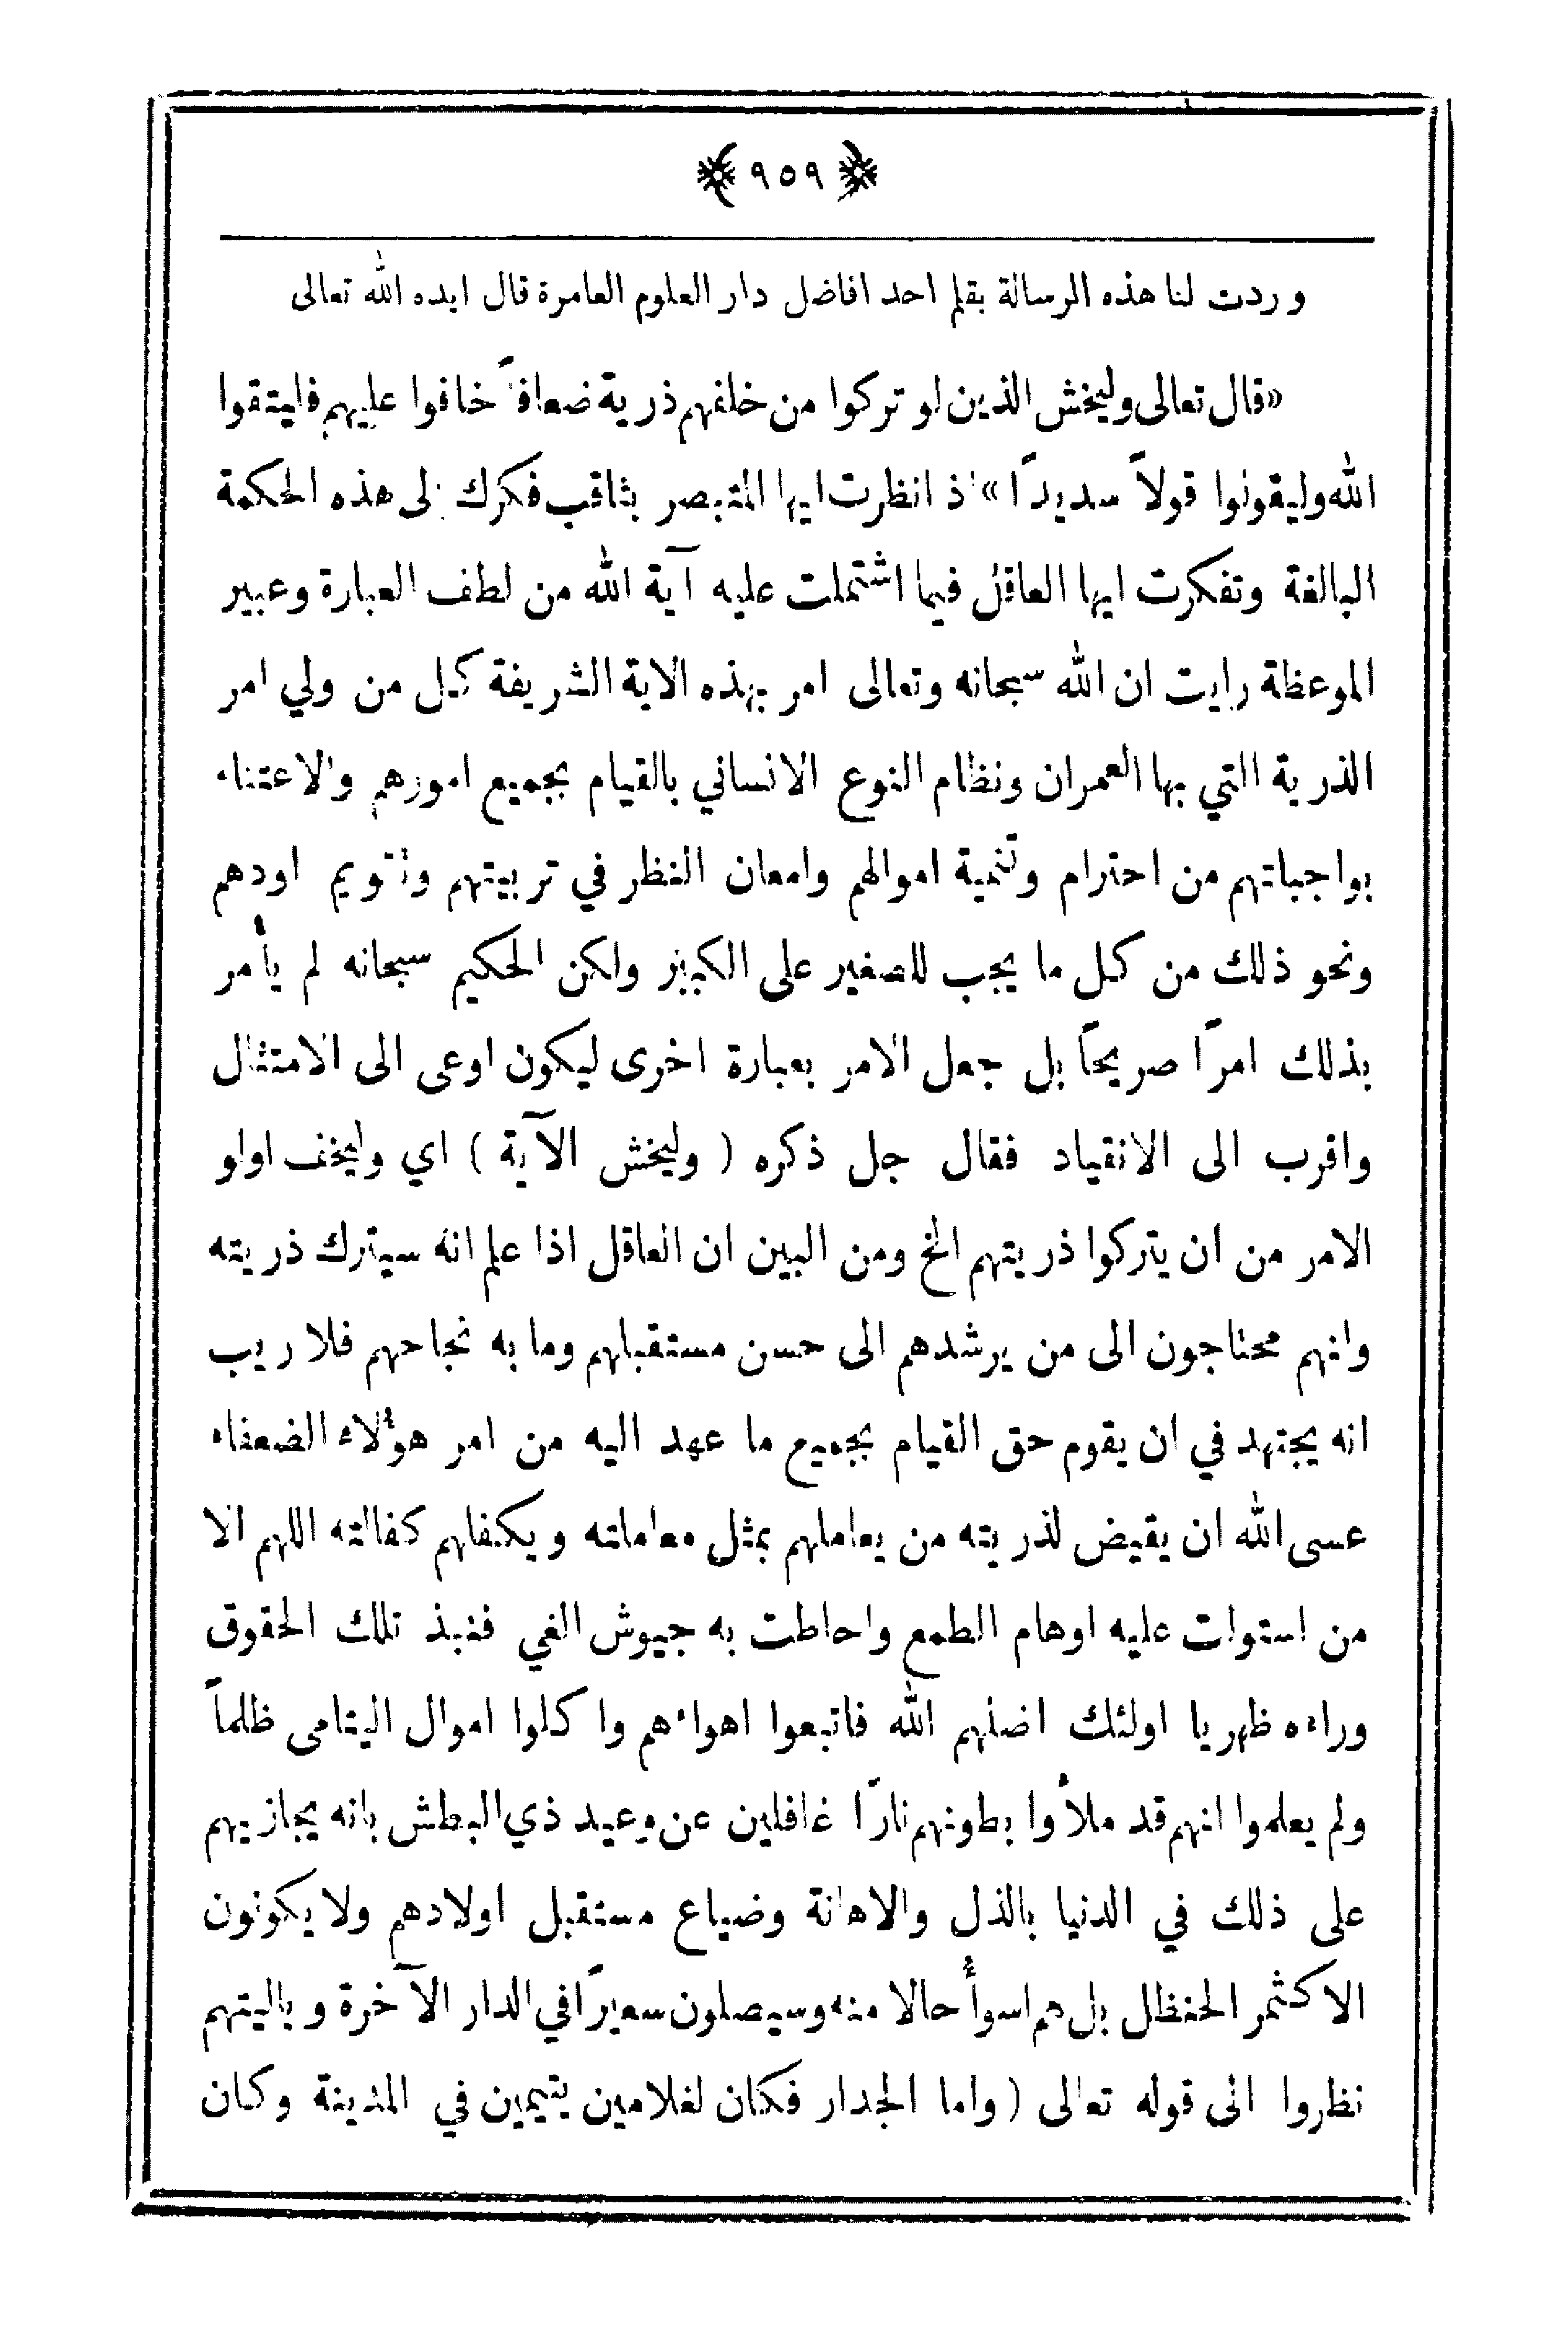 ﴿ ٩٥٩ ﴾
وردت لنا هذه الرسالة بقلم احد افاضل دار العلوم العامرة قال ايده الله تعالى
«قال تعالى وليخش الذين لو تركوا من خلفهم ذرية ضعافاً خافوا عليهم فليتقوا
الله وليقولوا قولاً سديدًا» اذ انظرت ايها المتبصر بثاقب فكرك الى هذه الحكمة
البالغة وتفكرت ايها العاقل فيما اشتملت عليه آية الله من لطف العبارة وعبير
الموعظة رايت ان الله سبحانه وتعالى امر بهذه الاية الشريفة كل من ولي امر
الذرية التي بها العمران ونظام النوع الانساني بالقيام بجميع امورهم والاعتناء
بواجباتهم من احترام وتنمية اموالهم وامعان النظر في تربيتهم وتقويم اودهم
ونحو ذلك من كل ما يجب للصغير على الكبير ولكن الحكيم سبحانه لم يأمر
بذلك امرًا صريحاً بل جعل الامر بعبارة اخرى ليكون اوعى الى الامتثال
واقرب الى الانقياد فقال جل ذكره ( وليخش الآية ) اي وليخف اولو
الامر من ان يتركوا ذريتهم الخ ومن البين ان العاقل اذا علم انه سيترك ذريته
وانهم محتاجون الى من يرشدهم الى حسن مستقبلهم وما به نجاحهم فلا ريب
انه يجتهد في ان يقوم حق القيام بجميع ما عهد اليه من امر هؤلاء الضعفاء
عسى الله ان يقيض لذريته من يعاملهم بمثل معاملته ويكفلهم كفالته اللهم الا
من استولت عليه اوهام الطمع واحاطت به جيوش الغي فنبذ تلك الحقوق
وراءه ظهريا اولئك اضلهم الله فاتبعوا اهواءهم واكلوا اموال اليتامى ظلماً
ولم يعلموا انهم قد ملأوا بطونهم نارًا غافلين عن وعيد ذي البطش بانه يجازيهم
على ذلك في الدنيا بالذل والاهانة وضياع مستقبل اولادهم ولا يكونون
الا كثمر الحنظل بل هم اسوأ حالا منه وسيصلون سعيرًا في الدار الآخرة وياليتهم
نظروا الى قوله تعالى (واما الجدار فكان لغلامين يتيمين في المدينة وكان